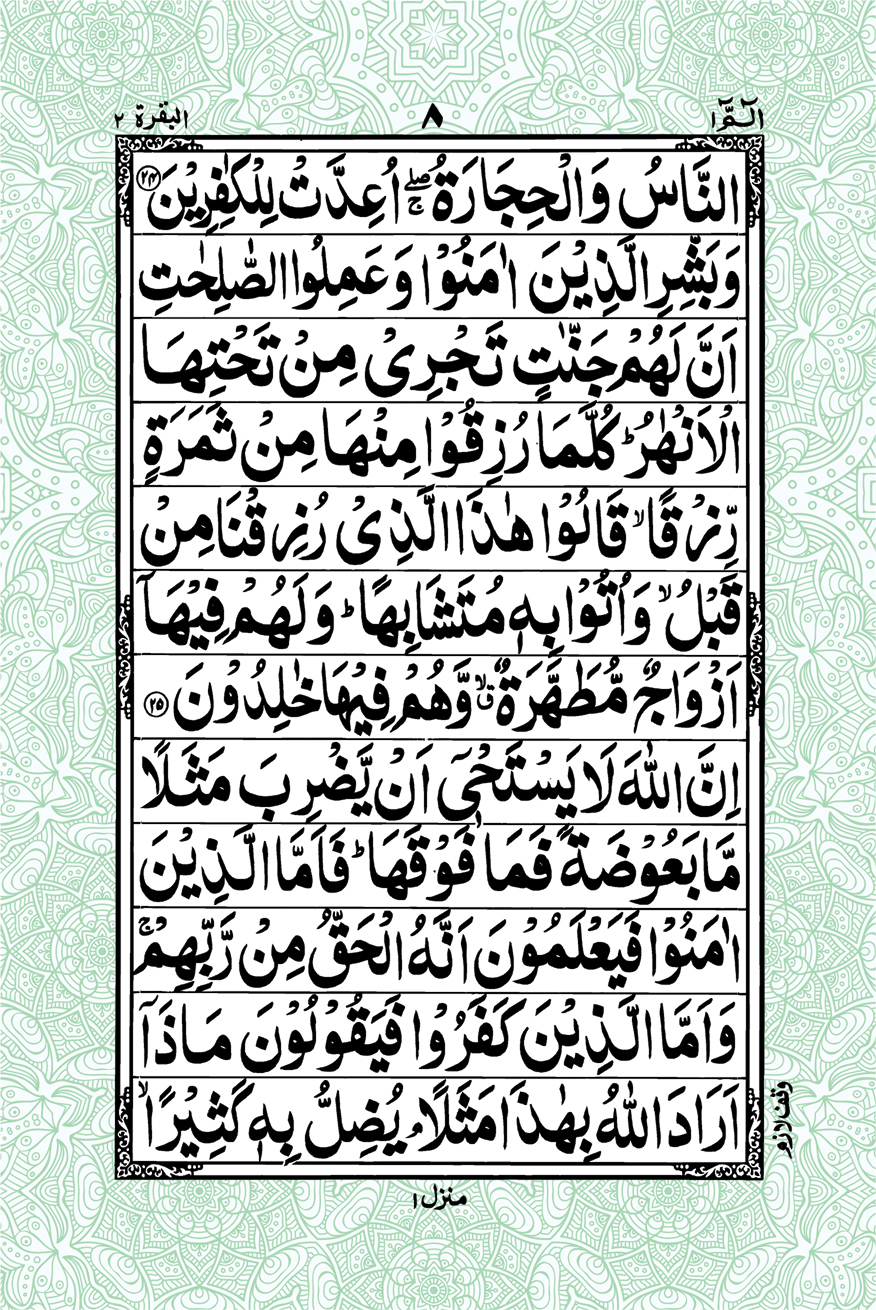 الٓمّٓ ١
٨
البقرة ٢
النَّاسُ وَالْحِجَارَةُ ۖۚ اُعِدَّتْ لِلْكٰفِرِيْنَ ٢٤
وَبَشِّرِ الَّذِيْنَ اٰمَنُوْا وَعَمِلُوا الصّٰلِحٰتِ
اَنَّ لَهُمْ جَنّٰتٍ تَجْرِىْ مِنْ تَحْتِهَا
الْاَنْهٰرُ ؕ كُلَّمَا رُزِقُوْا مِنْهَا مِنْ ثَمَرَةٍ
رِّزْقًا ۙ قَالُوْا هٰذَا الَّذِىْ رُزِقْنَا مِنْ
قَبْلُ ۙ وَاُتُوْا بِهٖ مُتَشَابِهًا ؕ وَلَهُمْ فِيْهَاۤ
اَزْوَاجٌ مُّطَهَّرَةٌ ۙق وَّهُمْ فِيْهَا خٰلِدُوْنَ ٢٥
اِنَّ اللّٰهَ لَا يَسْتَحْىٖۤ اَنْ يَّضْرِبَ مَثَلًا
مَّا بَعُوْضَةً فَمَا فَوْقَهَا ؕ فَاَمَّا الَّذِيْنَ
اٰمَنُوْا فَيَعْلَمُوْنَ اَنَّهُ الْحَقُّ مِنْ رَّبِّهِمْ ۚ
وَاَمَّا الَّذِيْنَ كَفَرُوْا فَيَقُوْلُوْنَ مَاذَاۤ
اَرَادَ اللّٰهُ بِهٰذَا مَثَلًا ۘ يُضِلُّ بِهٖ كَثِيْرًا ۙ
وقف لازم
منزل ١